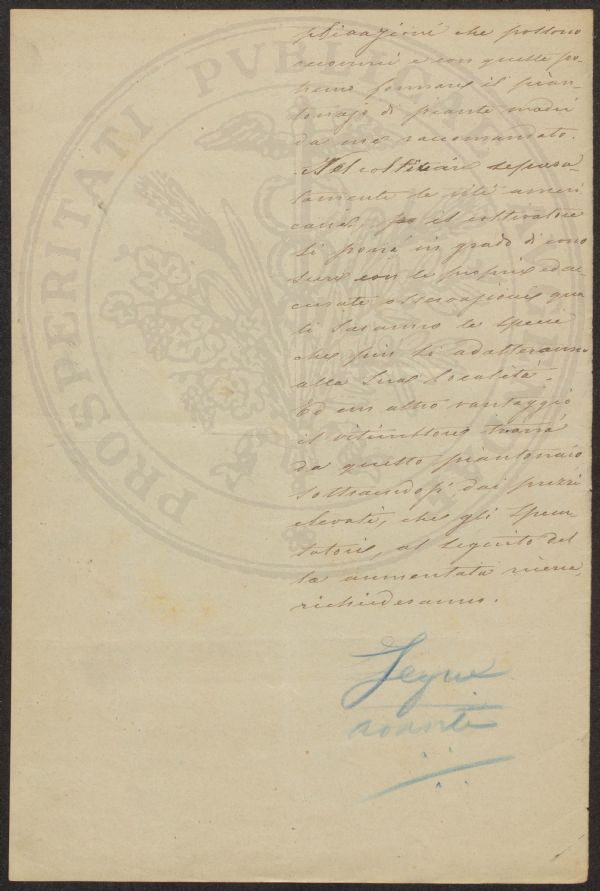 plicazioni che possono
occorrere e con queste po-
tremo formare il pian-
tonajo di piante madri
da me raccomandato.
Nel coltivare separa-
tamente le viti ameri
cane, il coltivatore
si porrà in grado di cono
scere con le proprie ed ac-
curate osservazioni qua
li saranno le specie
che più si adatteranno
alla sua località.
Ed un altro vantaggio
il viticultore trarrà
da questo piantonaio
sottraendosi dai prezzi
elevati, che gli specu-
latori, al seguito del
la aumentata ricerca,
richiederanno.
Segue
avanti
PROSPERITATI PUBLICAE